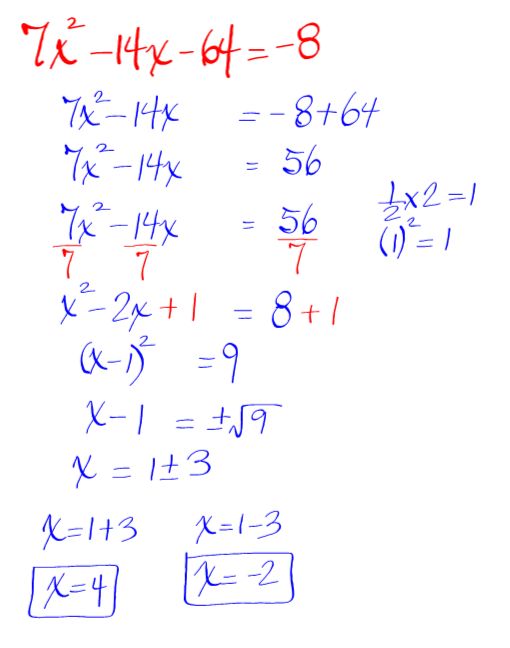 7x² - 14x - 64 = -8
7x² - 14x = -8 + 64
7x² - 14x = 56
7x²/7 - 14x/7 = 56/7
½ x 2 = 1
(1)² = 1
x² - 2x + 1 = 8 + 1
(x - 1)² = 9
x - 1 = ±√9
x = 1 ± 3
x = 1 + 3 x = 1 - 3
x = 4 x = -2